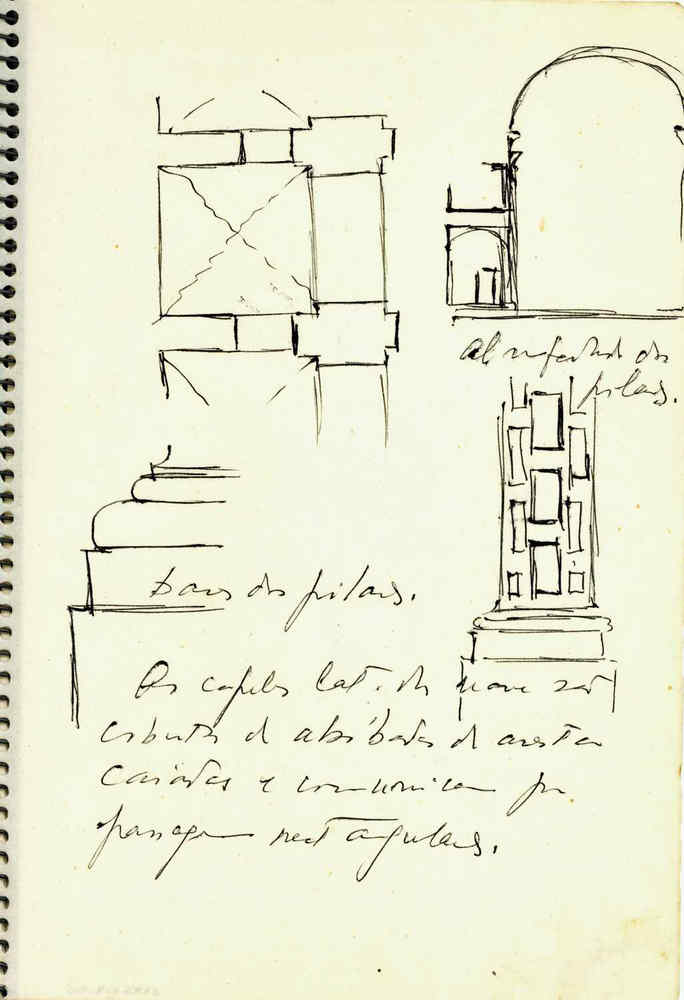 Almofadado dos
pilares.
Bases dos pilares.
As capelas lat. da nave são
cobertas de abóbadas de aresta
caiadas e comunicam por
passagens rectangulares.